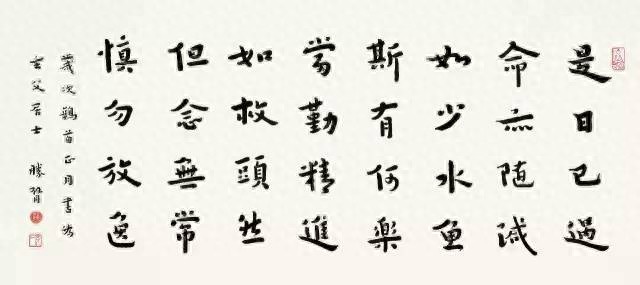 是日已過
命亦隨減
如少水魚
斯有何樂
當勤精進
如救頭然
但念無常
慎勿放逸
歲次鷄首正月書
父居士 勝